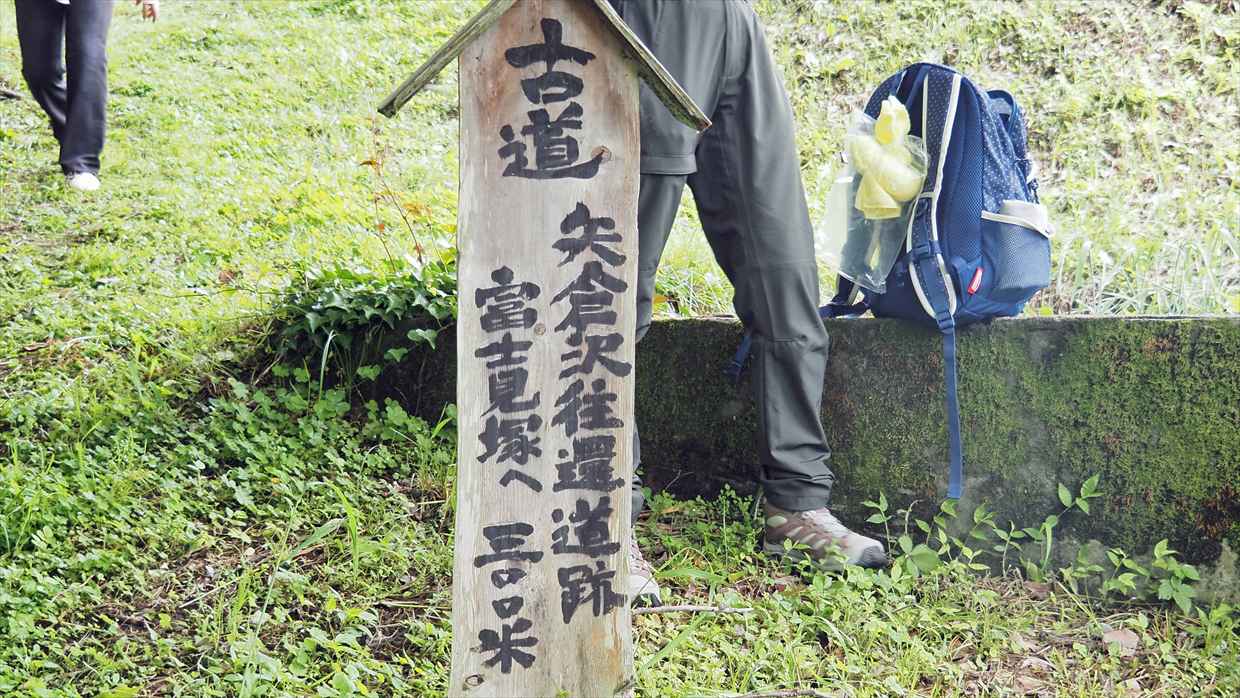 古道
矢倉沢往還道跡
富士見塚へ 三〇〇米